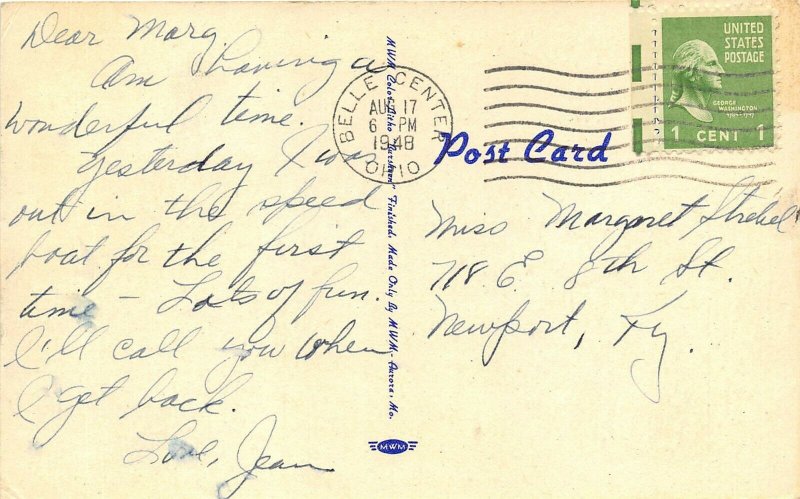 Dear Marg.
Am having a
wonderful time.
Yesterday I was
out in the speed
boat for the first
time - Lots of fun.
I'll call you when
I get back.
Love, Jean
MWM Color-Litho "Finished. Made Only By MWM - Aurora, Mo.
MWM
BELLE CENTER
AUG 17
6 PM
1948
OHIO
UNITED
STATES
POSTAGE
GEORGE
WASHINGTON
1 CENT 1
Post Card
Miss Margaret Strebel
718 E. 8th St.
Newport, Ky.